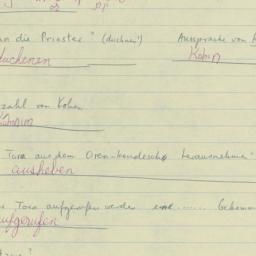 an die Priester" (duchnen) Aussprache von
duchenen Kohin
zahl von Kohen
Kohanim
Tora aus dem Oren-hakodesch herausnehmen"
ausheben
Tora aufgerufen werden Bekommen
aufgerufen